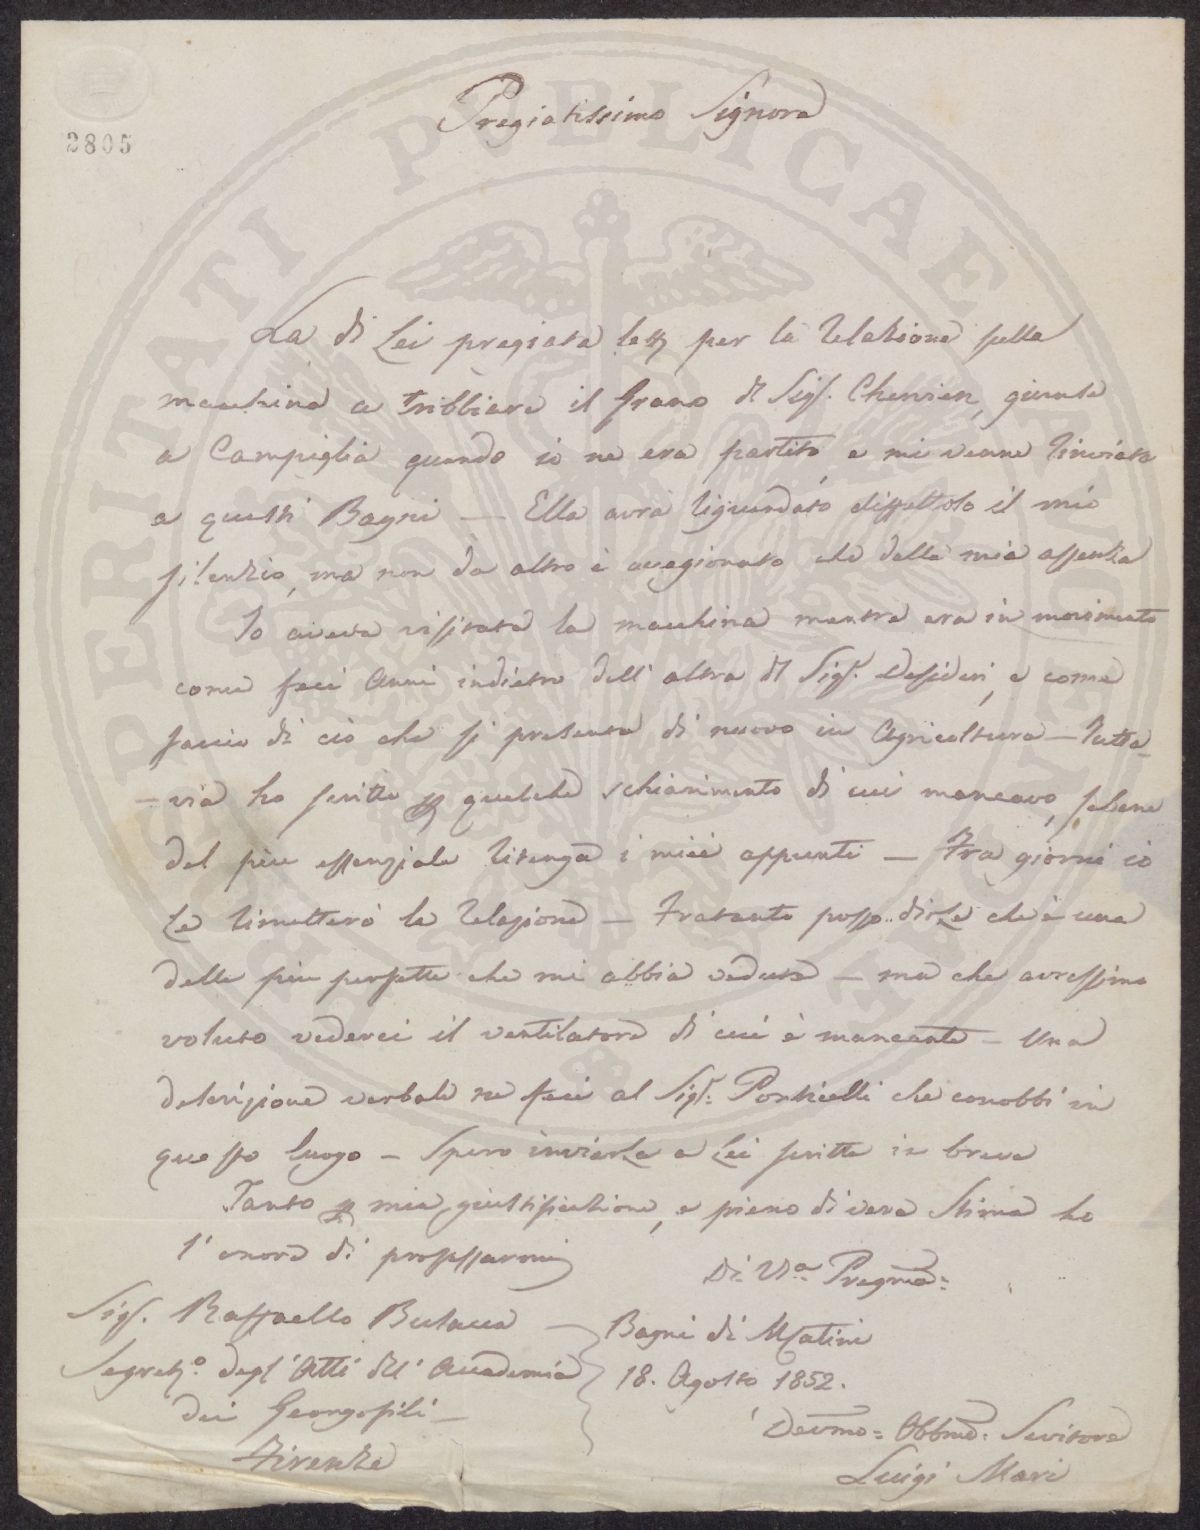 2805
Pregiatissimo Signore
La di Lei pregiata per la relazione sulla
macchina a tribbiare il grano del Sig.r giunse
a Campiglia quando io ne era partito, e mi venne rinviata
a questi Bagni — Ella avrà riguardato difettoso il mio
silenzio, ma non da altro è cagionato che dalla mia assenza
Io aveva visitata la macchina mentre era in movimento
come feci anni indietro dell'altra del Sig.r Desideri, e come
faccio di ciò che si presenta di nuovo in Agricoltura — Tutta-
-via ho scritto p qualche schiarimento di cui mancavo, sebene
del più essenziale ritenga i miei appunti — Fra giorni io
Le rimetterò la relazione — Fratanto posso dirLe che è una
delle più perfette che mi abbia veduta — ma che avressimo
voluto vederci il ventilatore di cui è mancante — Una
descrizione verbale ne feci al Sig.r che conobbi in
questo luogo — Spero inviarLa a Lei scritta in breve
Tanto p mia giustificazione, e pieno di vera stima ho
l'onore di professarmi
Di V.a Pregma=
Sig.r Raffaello Busacca —
Segret.o degl'Atti dell'Accademia
dei Georgofili —
Firenze
Bagni di MCatini
18. Agosto 1852.
Devmo= Obbmo= Servitore
Luigi Mari
PROSPERITATI PVBLICAE AVGENDAE